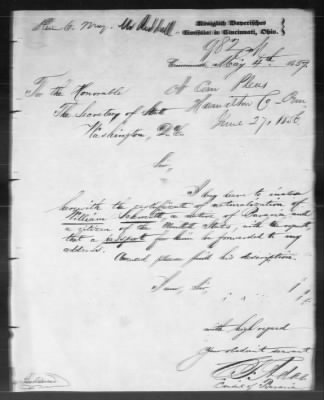 Königlich Bayerisches
Consulat in Cincinnati, Ohio.
982 M
Cincinnati, May 4th 1857
To the Honorable
The Secretary of State
Washington, D.C.
Com Pleas
Hamilton Co
June 27, 1856
Sir,
I beg leave to inclose
herewith the certificate of naturalization of
William Schmidt a native of Bavaria and
a citizen of the United States, with the request
that a passport for him be forwarded to my
address.
Annexed please find his description.
I am, Sir,
with high regard
Your obedient servant
Consul of Bavaria